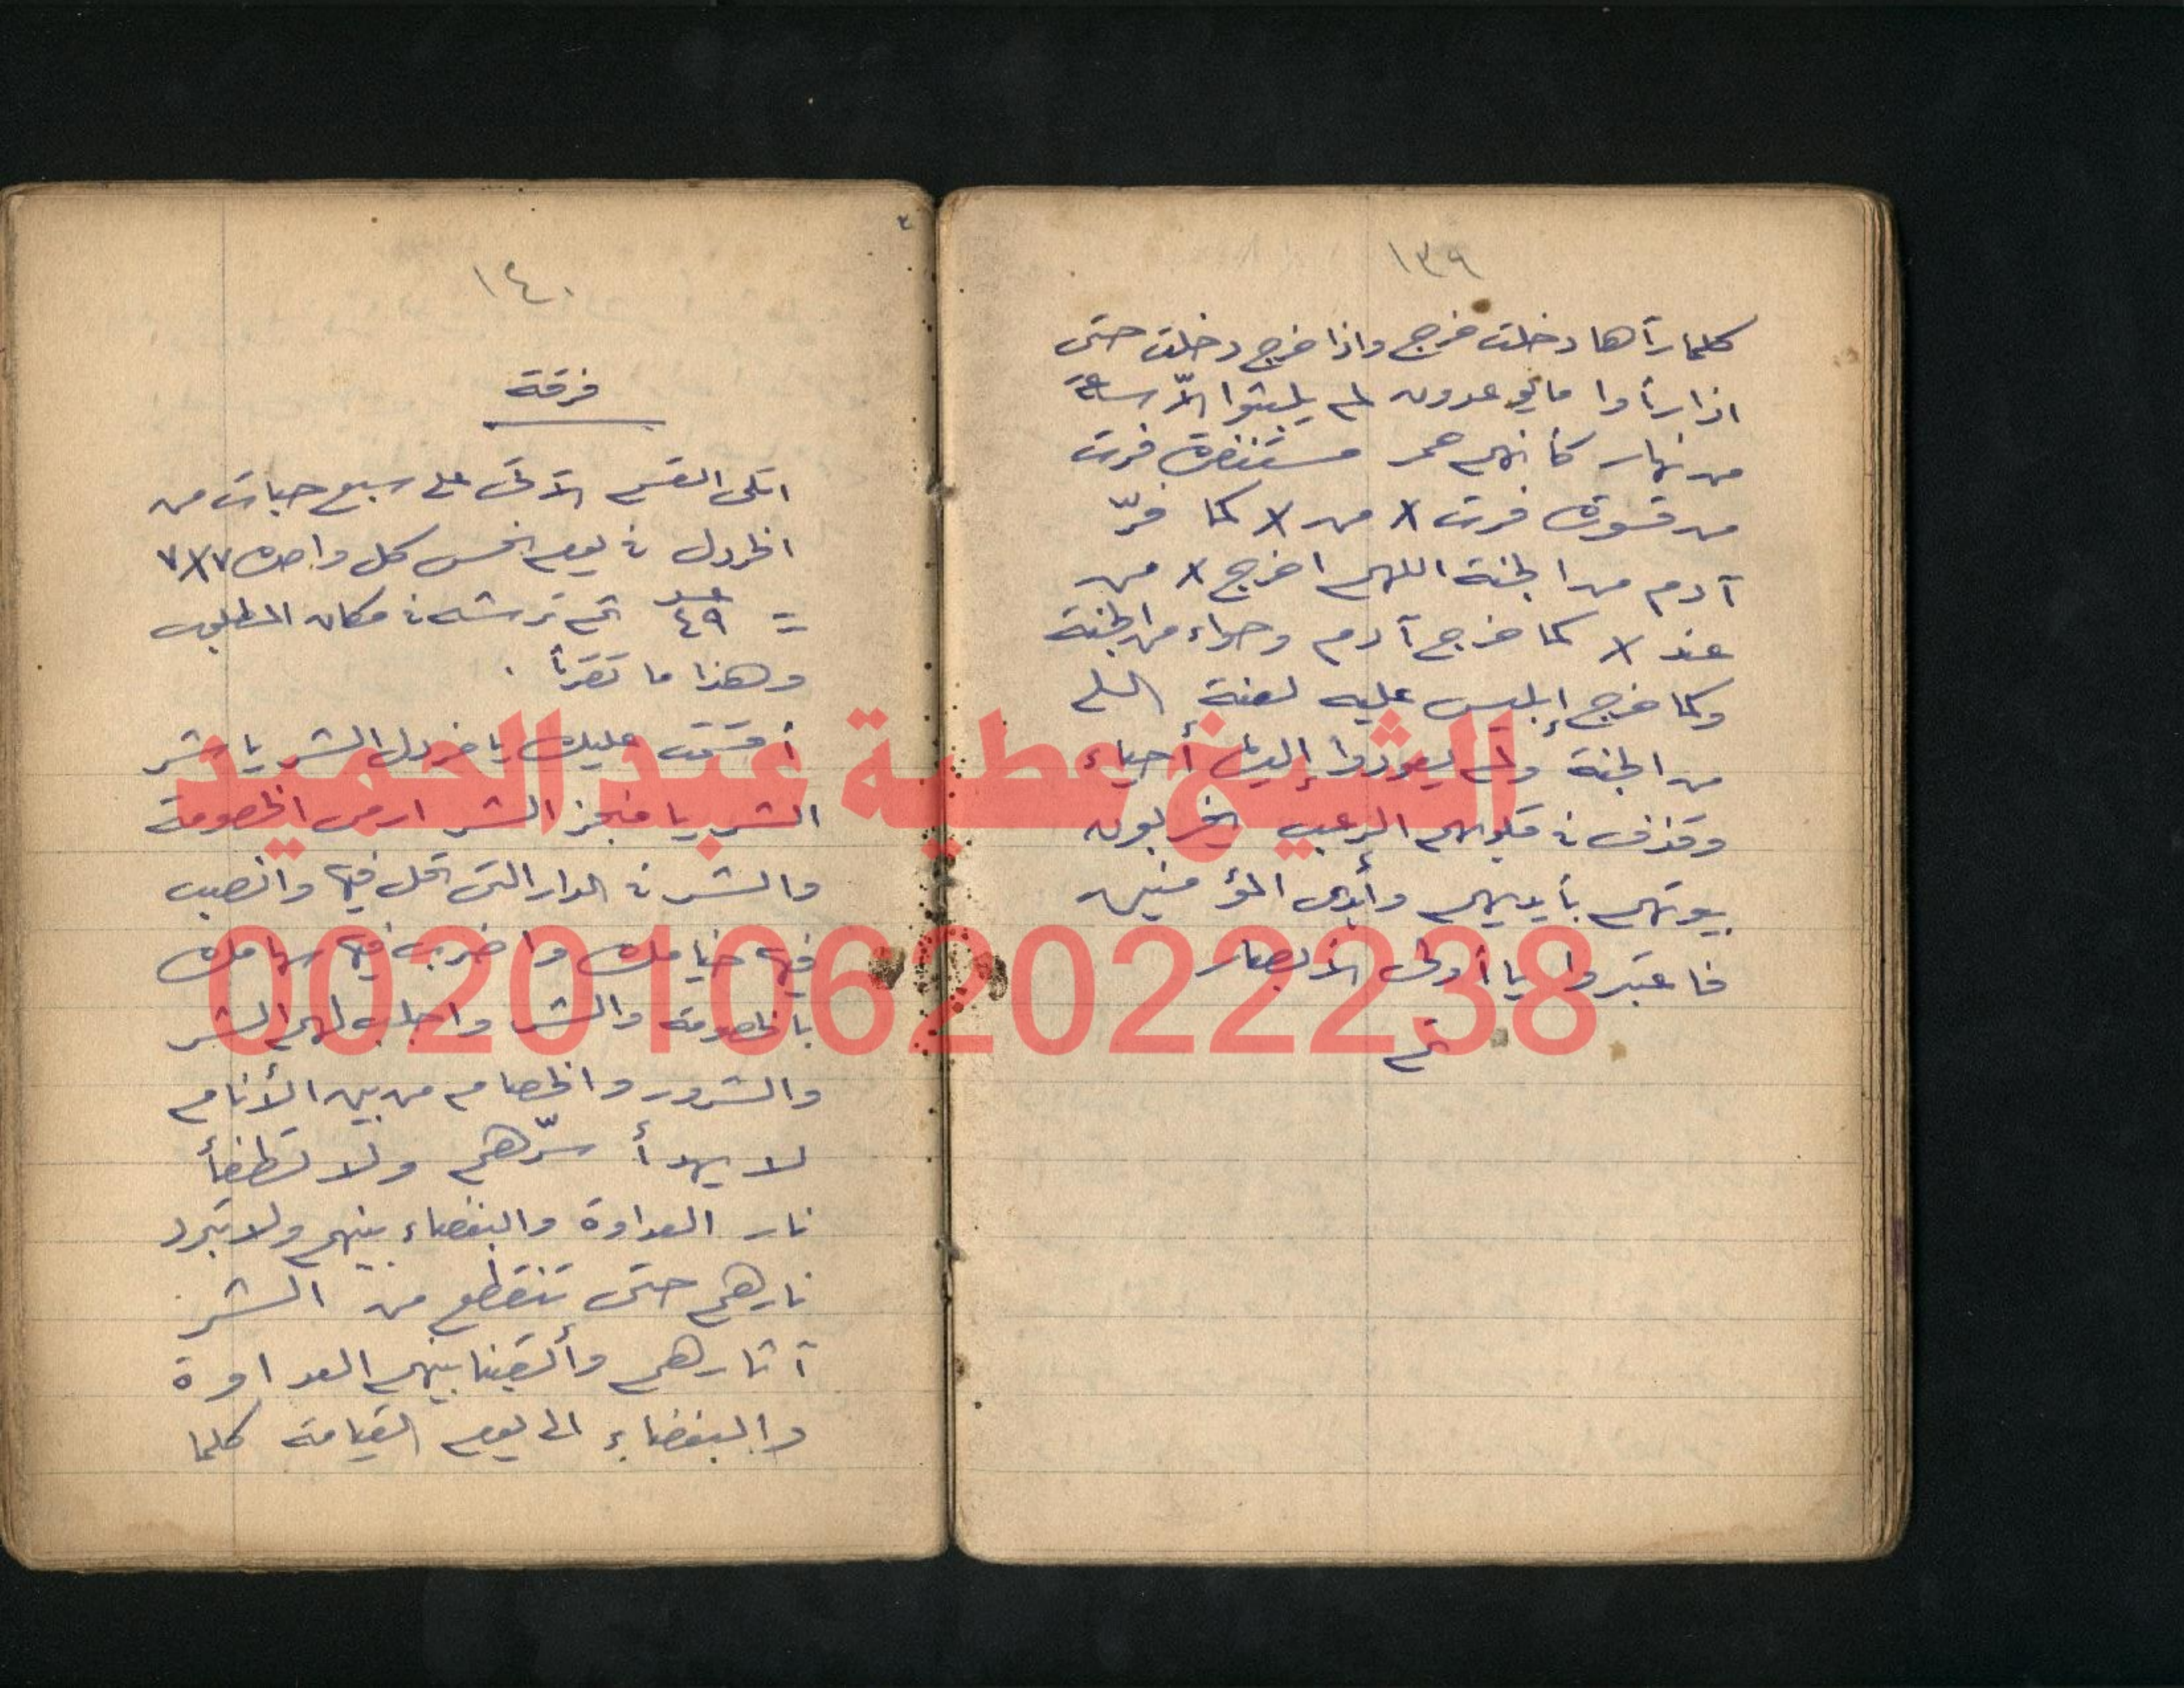 ١٣٩
كلما رآها دخلت خرج واذا خرج دخلت حتى
اذا رأوا ما يوعدون لم يلبثوا الاّ ساعة
من نهار كأنهم حمر مستنفرة فرت
من قسورة فرت X من X كما فرّ
آدم من الجنة اللهم اخرج X من
عند X كما خرج آدم وحواء من الجنة
وكما خرج إبليس عليه لعنة
من الجنة ولم يعودوا إليها أحياء
وقذف في قلوبهم الرعب يخربون
بيوتهم بأيديهم وأيدى المؤمنين
فاعتبروا يا أولى الأبصار
تم
١٤٠
فرقة
اتلى القسم الآتى على سبع حبات من
الخردل في يوم كل واحده ٧X٧
= ٤٩ ثم ترشه في مكان المطلوب
وهذا ما تقرأ .
أقسمت عليك يا خردل الشر يا شر
الشر يا منجز الشر ارمى الخصومة
والشر في الدار التى تحل فيها وانصب
فيها خيامك واضرب فيها سهامك
بالخصومة والشر واجلب لهم الشر
والشرور والخصام من بين الأنام
لا يهدأ سرّهم ولا تطفأ
نار العداوة والبغضاء بينهم ولا تبرد
نارهم حتى تنقطع من الشر
آثارهم وألقينا بينهم العداوة
والبغضاء الى يوم القيامة كلما
الشيخ عطية عبد الحميد
00201062022238